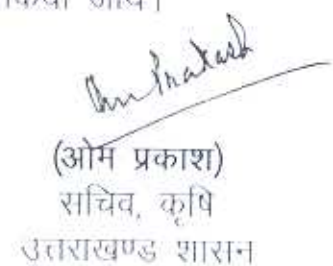 किया जाय।
Om Prakash
(ओम प्रकाश)
सचिव, कृषि
उत्तराखण्ड शासन